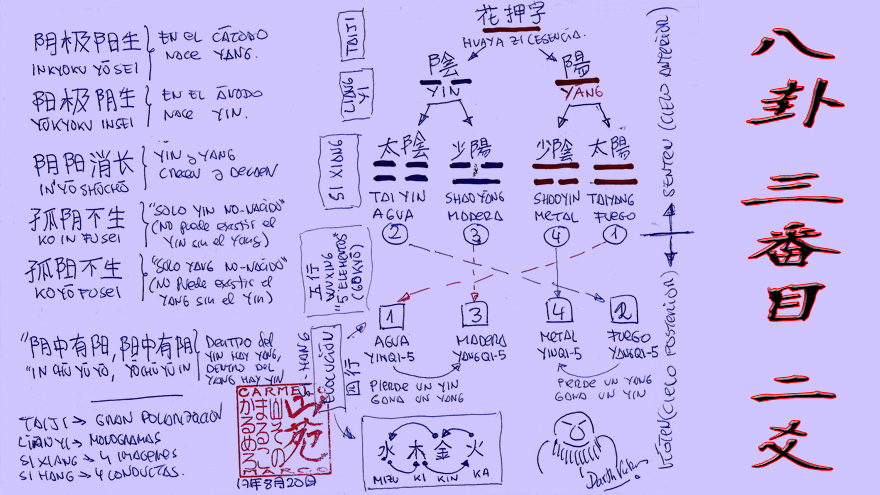 阴极阳生
INKYOKU YŌSEI
EN EL CÁTODO
NACE YANG.
阳极阴生
YŌKYOKU INSEI
EN EL ÁNODO
NACE YIN.
阴阳消长
IN YŌ SHŌCHŌ
YIN y YANG
CRECEN y DECAEN
孤阴不生
KO IN FUSEI
"SOLO YIN NO-NACIDO"
(NO PUEDE EXISTIR EL
YIN SIN EL YANG)
孤阳不生
KO YŌ FUSEI
"SOLO YANG NO-NACIDO"
(NO PUEDE EXISTIR EL
YANG SIN EL YIN)
"阴中有阳, 阳中有阴"
"IN CHŪ YŪ YŌ, YŌ CHŪ YŪ IN"
DENTRO DEL
YIN HAY YANG,
DENTRO DEL
YANG HAY YIN
TAIJI → GRAN POLARIZACIÓN
LIANYI → MONOGRAMAS
SI XIANG → 4 IMAGENES
SI HANG → 4 CONDUCTAS.
CARMELO
山苑
MARCO
17年8月20日
TAIJI
花押字
HUAYA ZI (ESENCIA.
LIANG YI
陰
YIN
陽
YANG
SI XIANG
太陰
少陽
少陰
太陽
TAI YIN
SHAO YANG
SHAOYIN
TAIYANG
AGUA
MADERA
METAL
FUEGO
2
3
4
1
五行
WUXING
"5 ELEMENTOS"
(GOKYŌ)
1
3
4
2
AGUA
MADERA
METAL
FUEGO
YINQI-5
YANGQI-5
YINQI-5
YANGQI-5
PIERDE UN YIN
GANA UN YANG
PIERDE UN YANG
GANA UN YIN
EVOLUCIÓN
四行
水木金火
MIZU KI KIN KA
SENTEN (CIELO ANTERIOR)
KŌTEN (CIELO POSTERIOR)
八卦 三番目 二爻